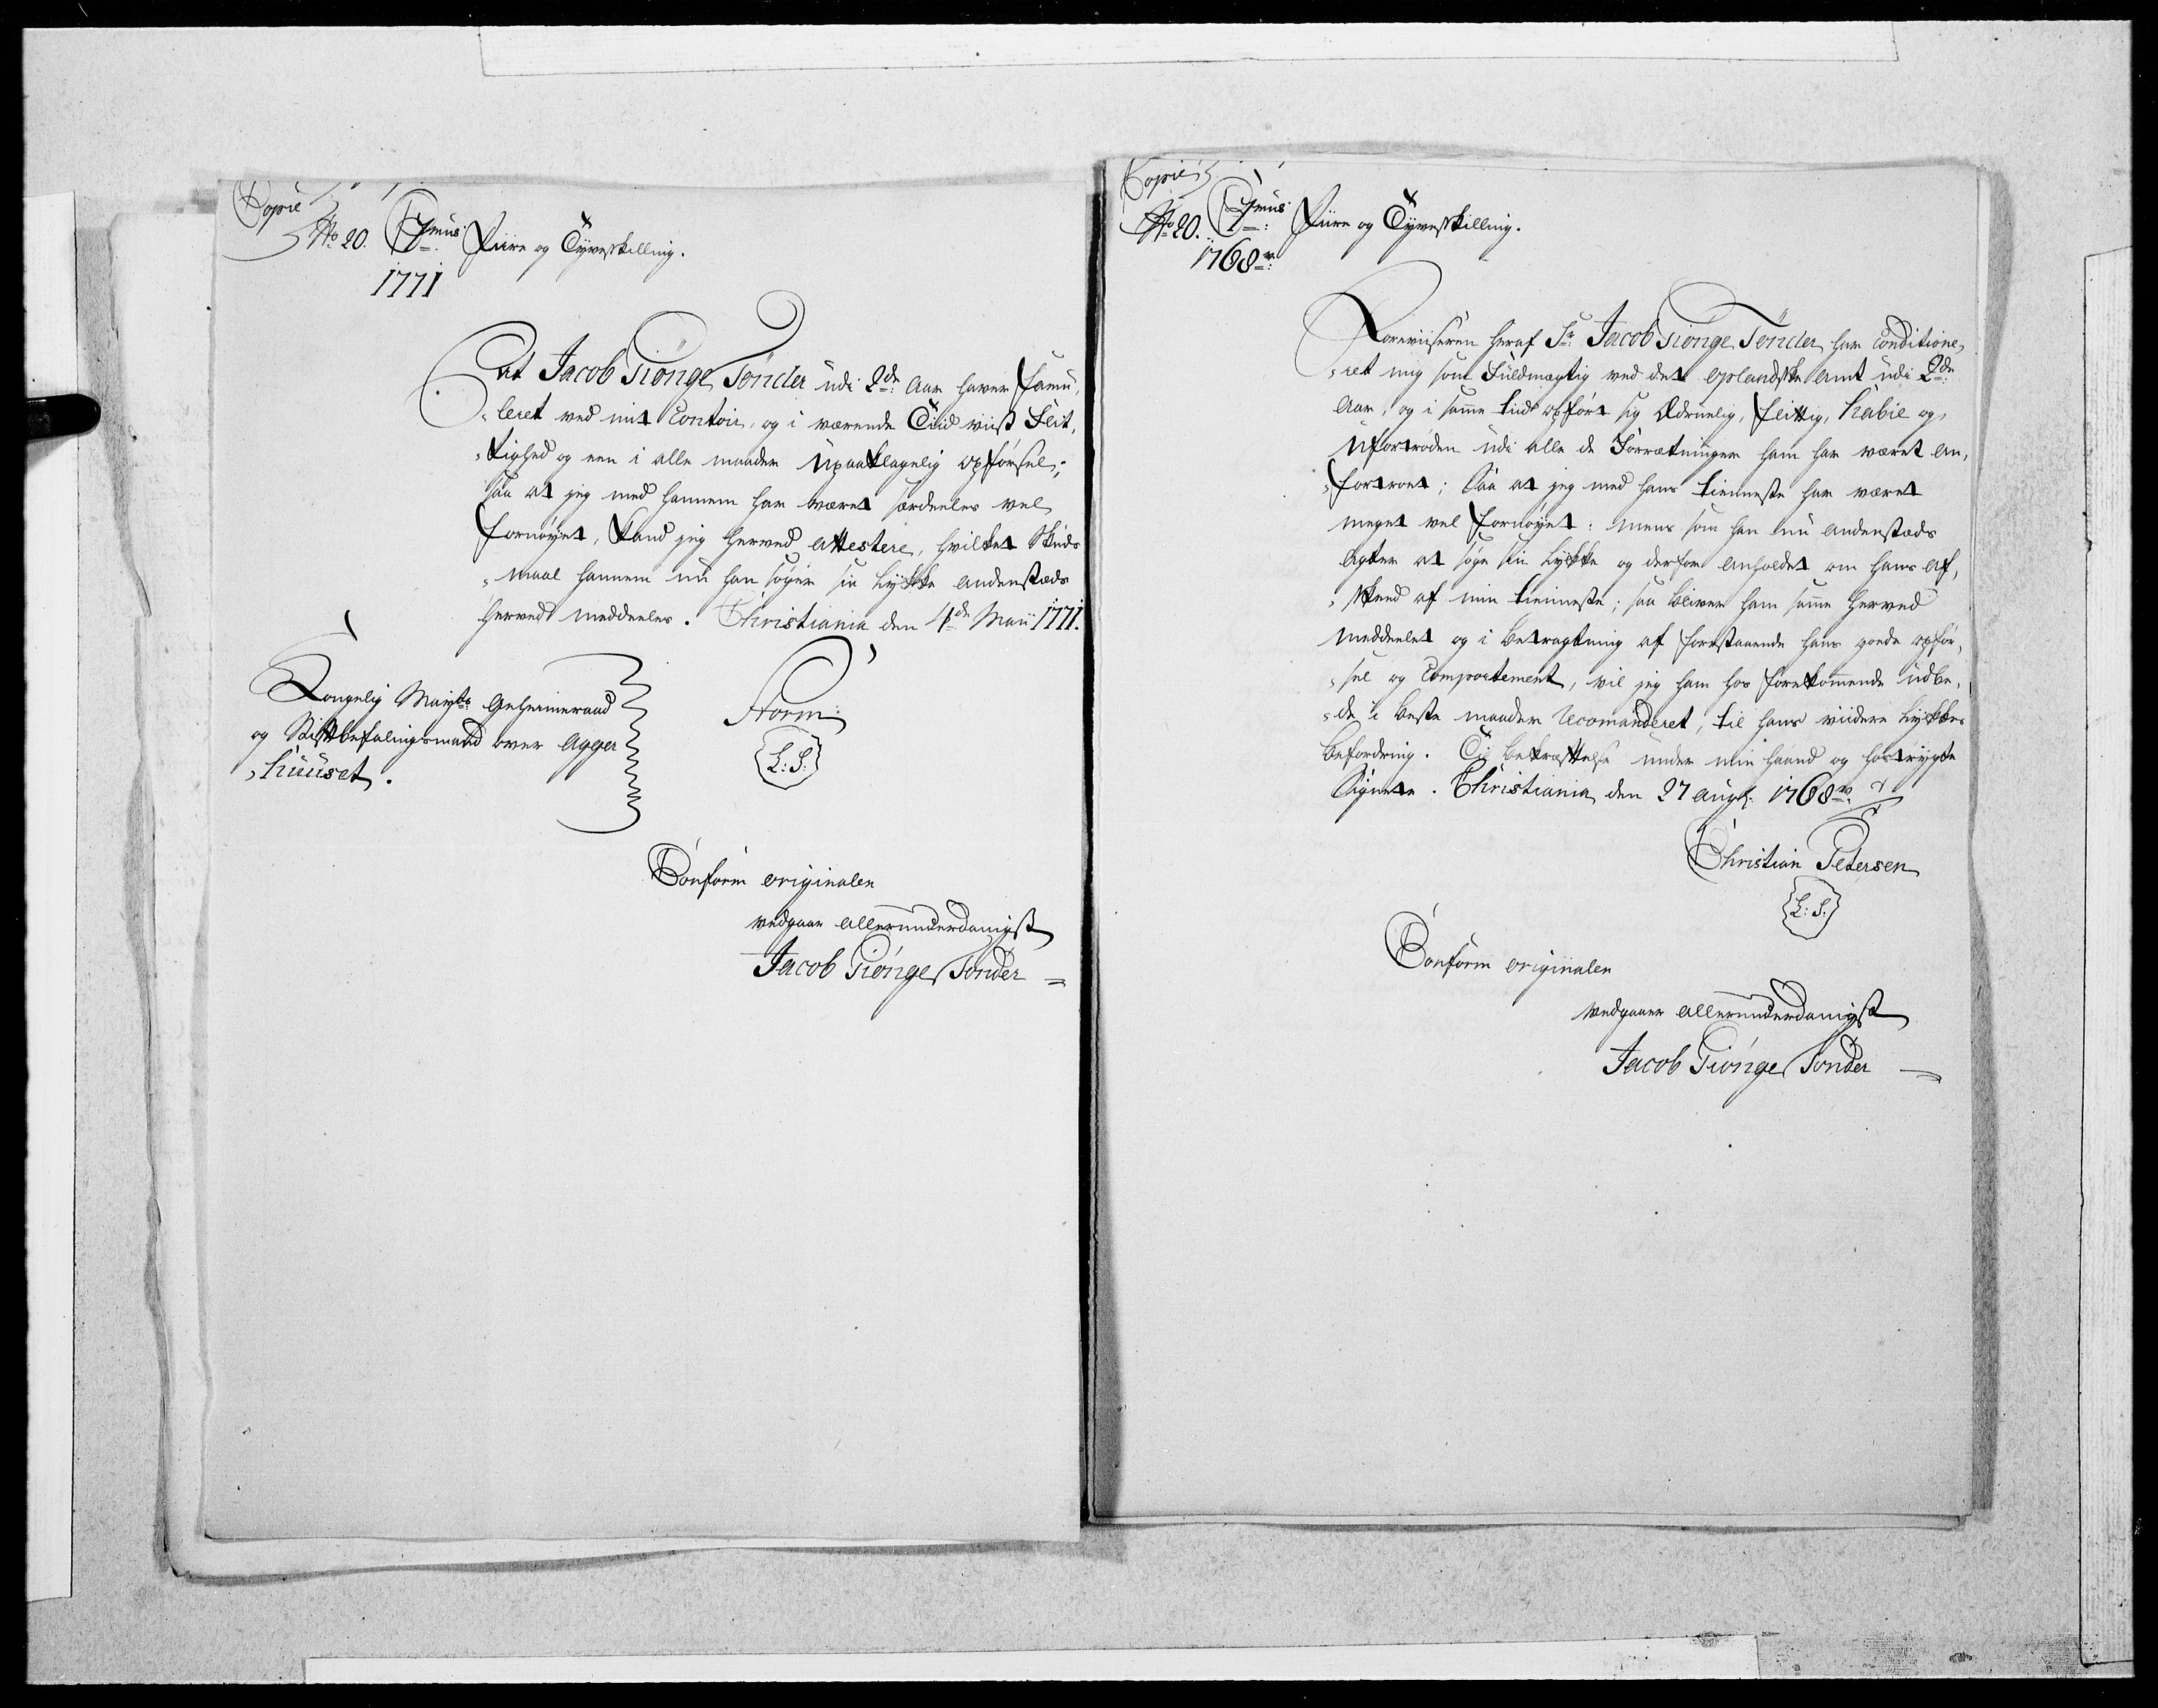 Copie
No 20. C7mus Fiire og Tÿveskilling.
1771
At Jacob Giönge Tönder udi 2de Aar haver famu,
leret ved mit Contoir, og i værende Tiid viist Flit,
tighed og een i alle maader Upaaklagelig opförsel;
saa at jeg med hannem har været særdeeles vel
fornöyet, kand jeg herved attestere, hvilket Skuds
maal hannem nu han söger sin Lykke andenstæds
herved meddeeles. Christiania den 4de Maii 1771.
Kongelig Mayts Geheimeraad
og Stiftbefalingsmand over Agger
huuset.
Storm
L:S:
Conform originalen
vedgaar allerunderdanigst
Jacob Giönge Tonder
Copie
No 20. C7mus Fiire og Tÿveskilling.
1768
Foreviiseren heraf Sr Jacob Giönge Tönder har Conditione,
ret mig som Fuldmægtig ved det Oplandske Amt udi 2de
Aar, og i samme tiid opfört sig Ædruelig, flittig, habil og
Ufortröden udi alle de Forrætninger ham har været an,
fortroet; Saa at jeg med hans tienneste har været
meget vel fornöyet: mens som han nu andenstæds
agter at söge sin Lykke og derfor anholdet om hans Af,
skeed af min tienneste; saa bliver ham samme herved
meddeelet og i betragtning af forestaaende hans goede opför,
sel og Comportement, vil jeg ham hos forekommende udbe,
de i beste maader Recomanderet, til hans viidere Lykkes
befordring. Til bekræftelse under min haand og hostrygte
Signete. Christiania den 27 Aug: 1768
Christian Petersen
L:S:
Conform originalen
vedgaaer allerunderdanigst
Jacob Giönge Tonder